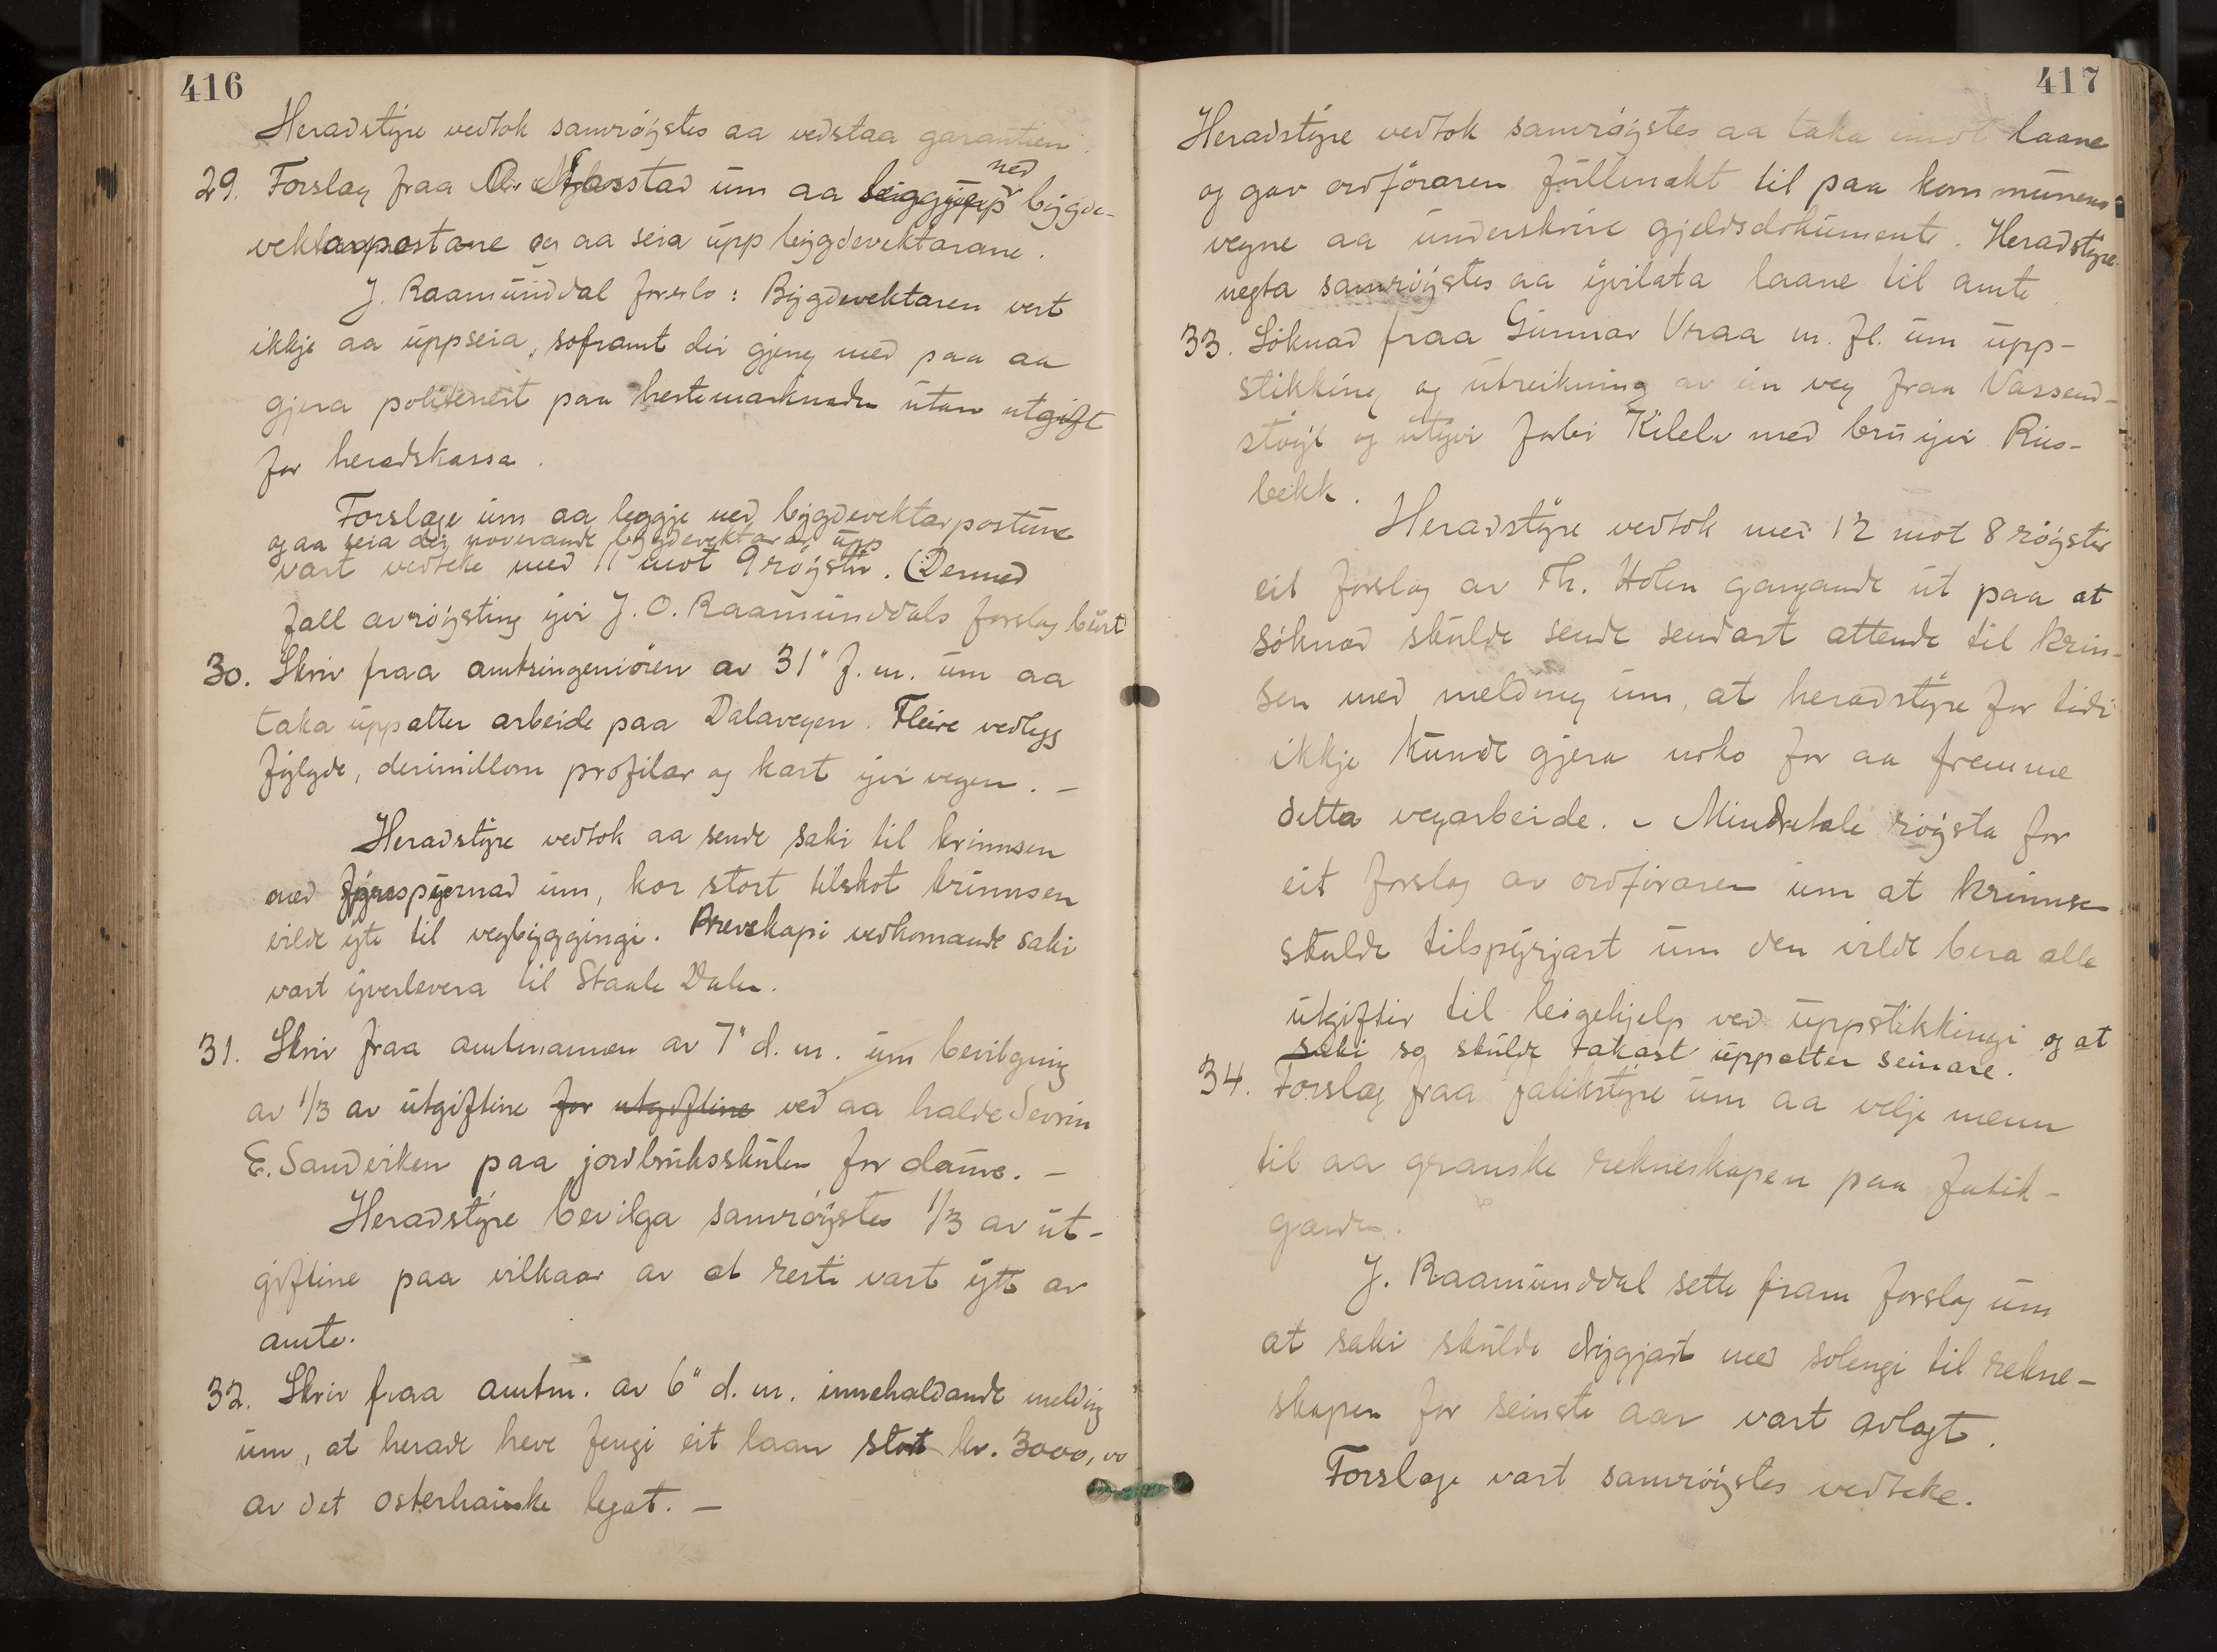 416
Heradstyre vedtok samrøystes aa vedstaa garantien.
29. Forslag fraa O. Mjaasstad um aa leggje ned bygde-
vektarpostane og aa seia upp bygdevektarane.
J. Raamunddal foreslo: Bygdevektaren vert
ikkje aa uppseia, soframt dei gjeng med paa aa
gjera politenest paa hestemarknade utan utgift
for heradskassa.
Forslage um aa leggje ned bygdevektarpostane
og aa seia dei noverande bygdevektarar upp
vart vedteke med 11 mot 9 røyster. (Dermed
fall avrøysting yvi J. O. Raamunddals forslag burt
30. Skriv fraa amtsingeniøren av 31" f. m. um aa
taka uppatter arbeide paa Dalavegen. Fleire vedlegg
fylgde, derimillom profilar og kart yvi vegen. —
Heradstyre vedtok aa sende saki til krinnsen
med fyrespurnad um, kor stort tilskot krinnsen
vilde yte til vegbyggingi. Brevskapi vedkomande saki
vart yverlevera til Staale Dale.
31. Skriv fraa amtmannen av 7" d. m. um bevilgning
av 1/3 av utgiftine for utgiftine ved aa halde Sevrin
E. Sandviken paa jordbruksskulen for dauve. —
Heradstyre bevilga samrøystes 1/3 av ut-
giftine paa vilkaar av at resti vart ytt av
amte.
32. Skriv fraa amtm. av 6" d. m. innehaldande melding
um, at herade heve fengi eit laan stort kr. 3000,00
av det osterhauske legat. —
417
Heradstyre vedtok samrøystes aa taka imot laane
og gav ordføraren fullmakt til paa kommunens
vegne aa underskrive gjeldsdokumente. Heradstyre
negta samrøystes aa yvilata laane til amte.
33. Søknad fraa Gunnar Vraa m. fl. um upp-
stikking og utreikning av ein veg fraa Vassend-
støyl og utyvi forbi Kilelv med bru yvi Rus-
bekk.
Heradstyre vedtok med 12 mot 8 røyster
eit forslag av Th. Holen gangande ut paa at
søknad skulde sende sendast attende til krin-
sen med melding um, at heradstyre for tidi
ikkje kunde gjera noko for aa fremme
detta vegarbeide. – Mindretale røysta for
eit forslag av ordføraren um at krinnsen
skulde tilspyrjast um den vilde bera alle
utgifter til leigehjelp ved uppstikkingi og at
saki so skulde takast uppatter seinare.
34. Forslag fraa fatikstyre um aa velje menn
til aa granske rekneskapen paa fatik-
garden.
J. Raamunddal sette fram forslag um
at saki skulde drygjast med solengi til rekne-
skapen for seinste aar vart avlagt.
Forslage vart samrøystes vedteke.